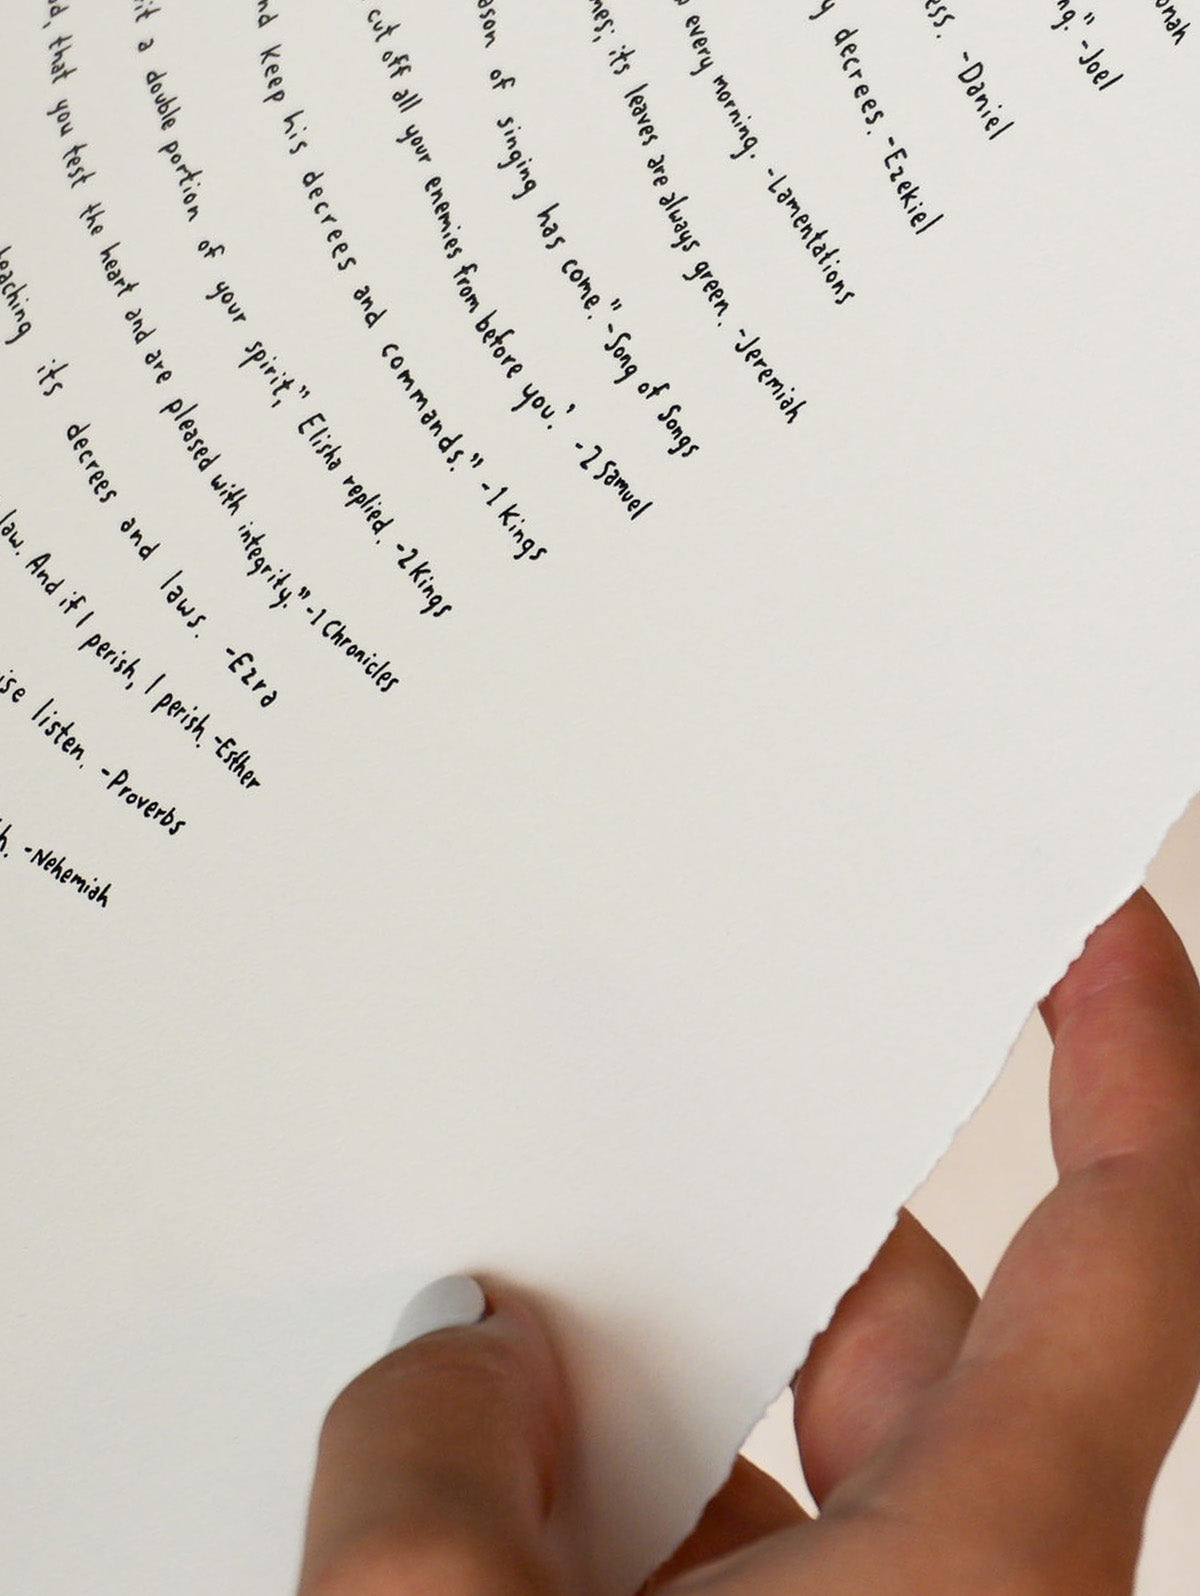 -Nehemiah
listen. -Proverbs
law. And if I perish, I perish. -Esther
its decrees and laws. -Ezra
that you test the heart and are pleased with integrity." -1 Chronicles
a double portion of your spirit," Elisha replied. -2 Kings
keep his decrees and commands." -1 Kings
cut off all your enemies from before you.' -2 Samuel
of singing has come." -Song of Songs
its leaves are always green. -Jeremiah
every morning. -Lamentations
decrees. -Ezekiel
-Daniel
-Joel